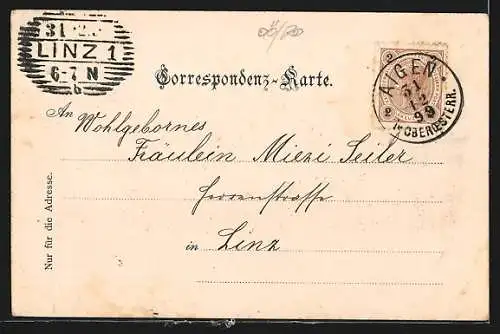 31
LINZ 1
6-7 N
b
Correspondenz-Karte.
2
AIGEN
31
12
99
2
in OBEROESTERR.
An Wohlgebornes
Fräulein Miezi Seiler
Herrenstrasse
in Linz
Nur für die Adresse.